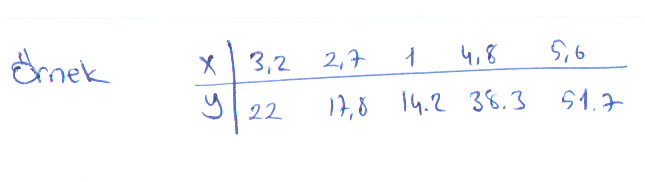 Örnek
x 3,2 2,7 1 4,8 5,6
y 22 17,8 14.2 38.3 51.7